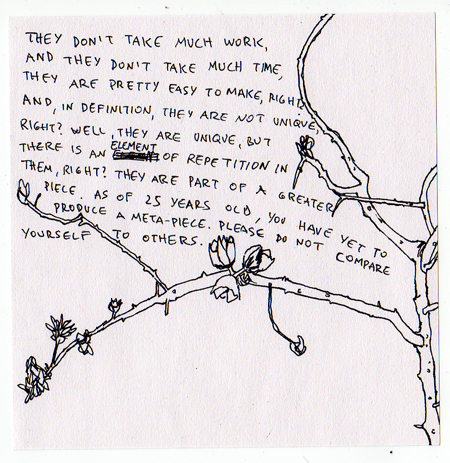 THEY DON'T TAKE MUCH WORK,
AND THEY DON'T TAKE MUCH TIME,
THEY ARE PRETTY EASY TO MAKE, RIGHT?
AND, IN DEFINITION, THEY ARE NOT UNIQUE,
RIGHT? WELL, THEY ARE UNIQUE, BUT
THERE IS AN ELEMENT OF REPETITION IN
THEM, RIGHT? THEY ARE PART OF A GREATER
PIECE. AS OF 25 YEARS OLD, YOU HAVE YET TO
PRODUCE A META-PIECE. PLEASE DO NOT COMPARE
YOURSELF TO OTHERS.